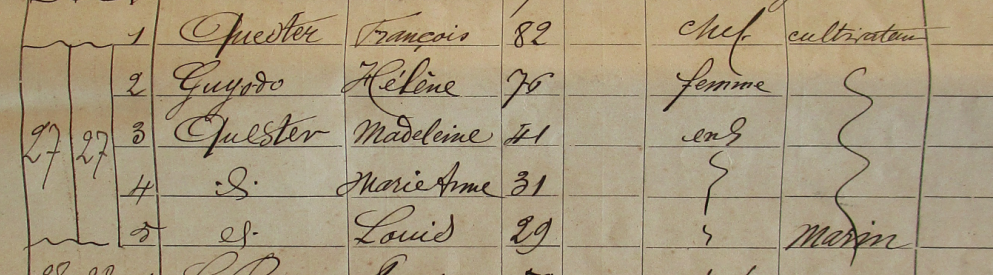 1 Quester François 82 chef cultivateur
2 Guyodo Hélène 76 femme
27 27 3 Quester Madeleine 41 enf
4 id. Marie Anne 31
5 id. Louis 29 Marin